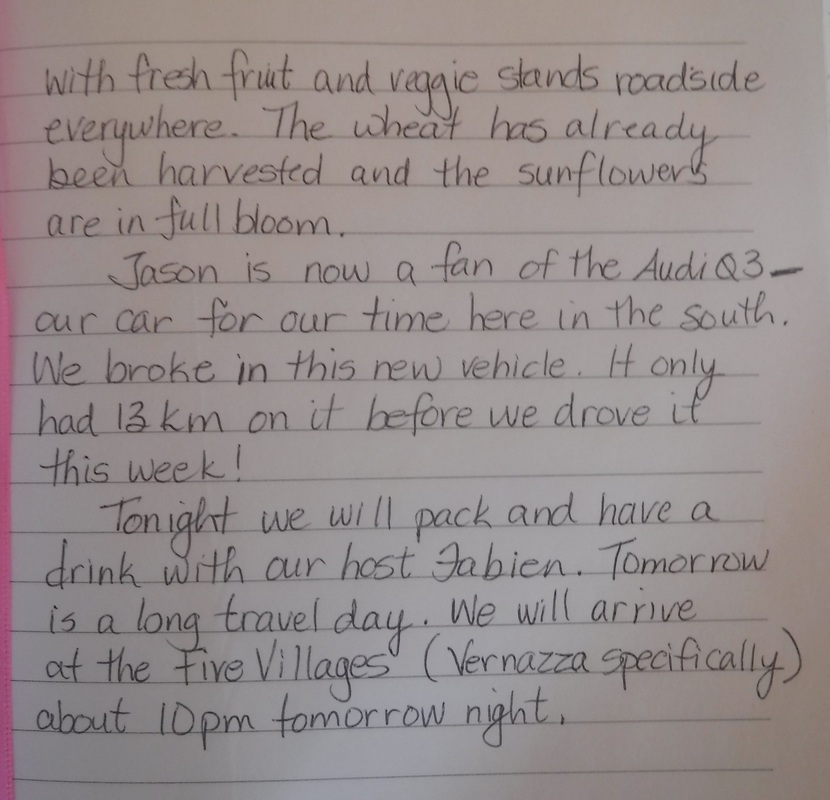 with fresh fruit and veggie stands roadside
everywhere. The wheat has already
been harvested and the sunflowers
are in full bloom.
Jason is now a fan of the Audi Q3 -
our car for our time here in the south.
We broke in this new vehicle. It only
had 13 km on it before we drove it
this week!
Tonight we will pack and have a
drink with our host Fabien. Tomorrow
is a long travel day. We will arrive
at the Five Villages (Vernazza specifically)
about 10pm tomorrow night.